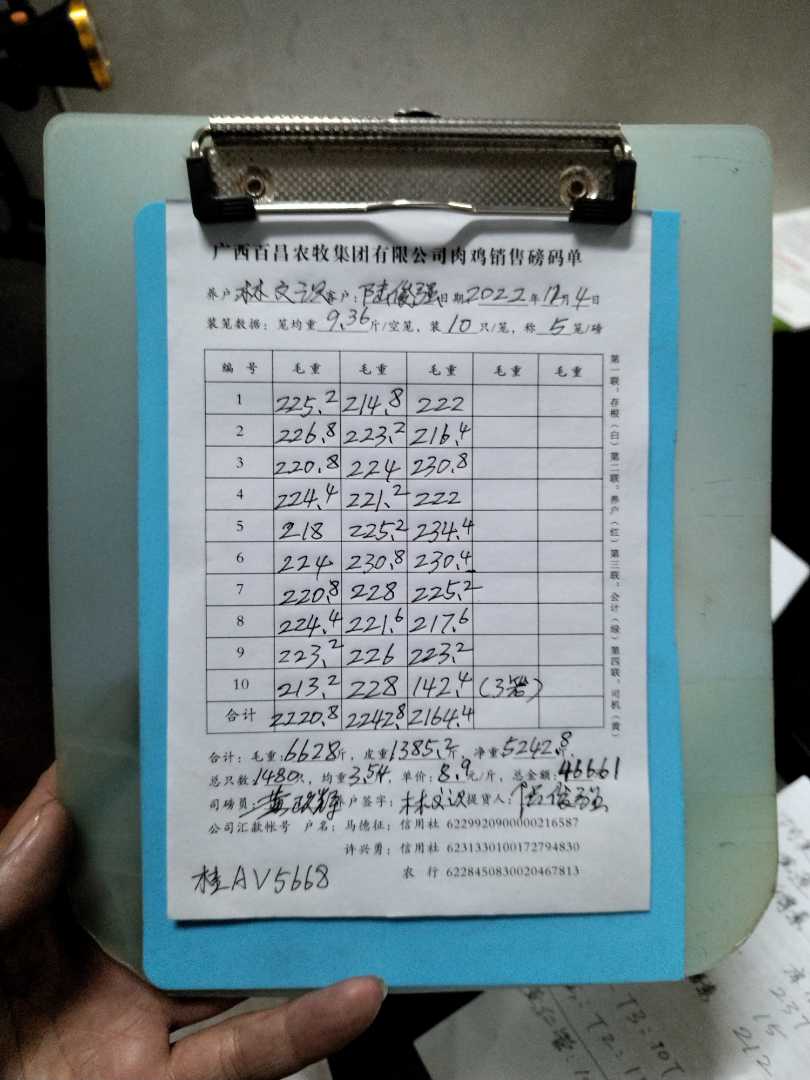 广西百昌农牧集团有限公司肉鸡销售磅码单
养户 林文识 客户：陆俊强 日期 2022 年 12 月 4 日
装笼数据：笼均重 9.36 斤/空笼，装 10 只/笼，称 5 笼/磅
编号 毛重 毛重 毛重 毛重 毛重
1 225.2 214.8 222
2 226.8 223.2 216.4
3 220.8 224 230.8
4 224.4 221.2 222
5 218 225.2 234.4
6 224 230.8 230.4
7 220.8 228 225.2
8 224.4 221.6 217.6
9 223.2 226 223.2
10 213.2 228 142.4 (3笼)
合计 2220.8 2242.8 2164.4
合计：毛重：6628斤，皮重1385.2斤，净重：5242.8斤，
总只数：1480只，均重3.54，单价：8.9元/斤，总金额：46661
司磅员： 养户签字：林文识 提货人：陆俊强
公司汇款帐号 户名：马德征：信用社 6229920900000216587
许兴勇：信用社 6231330100172794830
农行 6228450830020467813
桂AV5668
第一联：存根（白）第二联：养户（红）第三联：会计（绿）第四联：司机（黄）